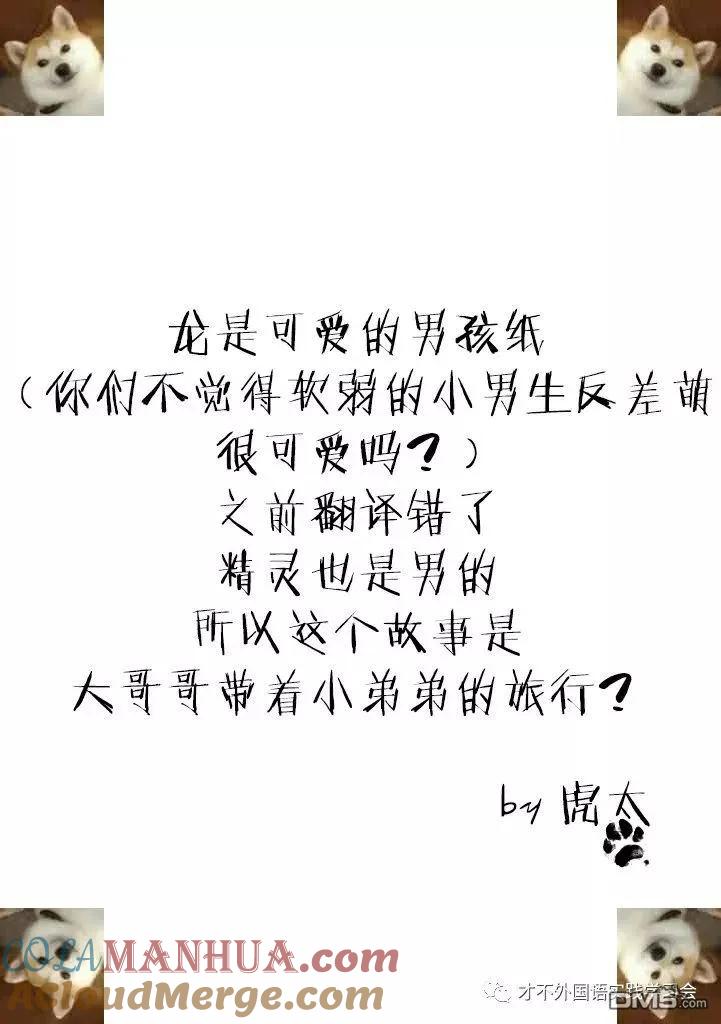 龙是可爱的男孩纸
（你们不觉得软弱的小男生反差萌
很可爱吗？）
之前翻译错了
精灵也是男的
所以这个故事是
大哥哥带着小弟弟的旅行？
by 虎太
COLAMANHUA.com
AcloudMerge.com
才不外国语实践学习会
DM5.com